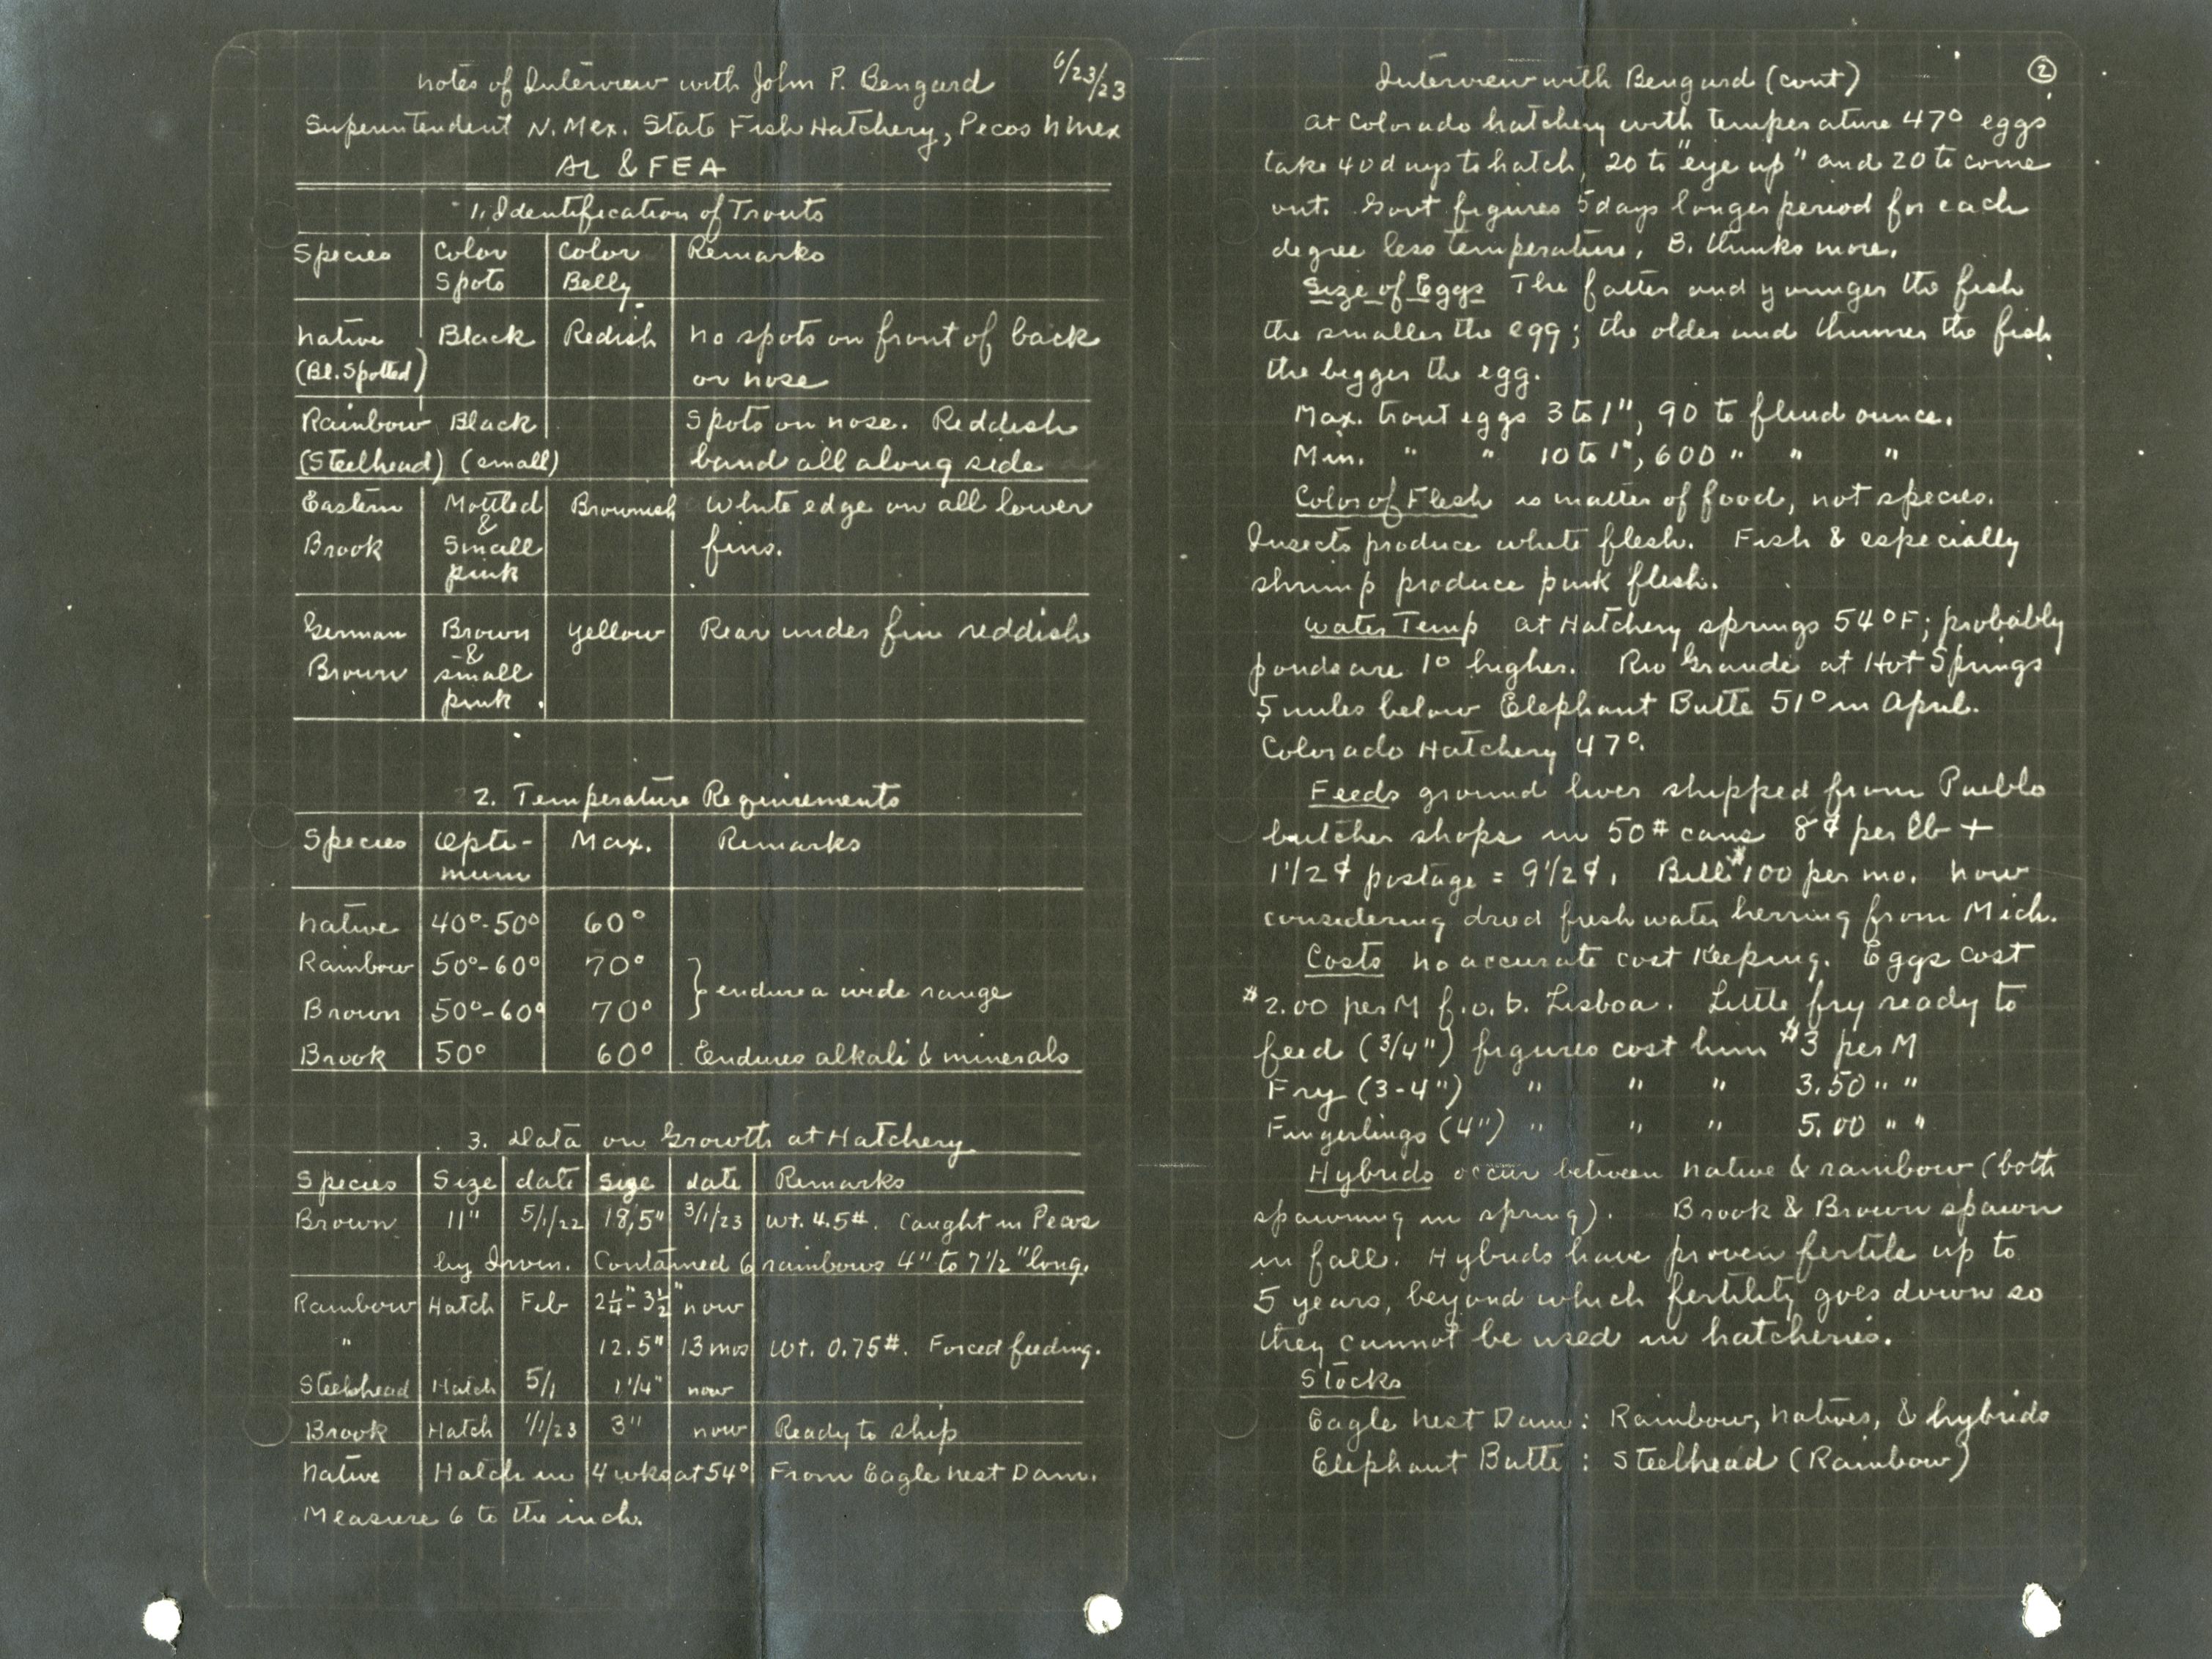 notes of Interview with John P. Bengard 6/23/23
Superintendent N. Mex. State Fish Hatchery, Pecos N Mex
AL & FEA
1. Identification of Trouts
Species Color Color Remarks
Spots Belly
Native Black Redish no spots on front of back
(Bl. Spotted) or nose
Rainbow Black Spots on nose. Reddish
(Steelhead) (small) band all along side
Eastern Mottled Brownish White edge on all lower
&
Brook Small fins.
pink
German Brown yellow Rear under fin reddish
&
Brown small
pink
2. Temperature Requirements
Species Opti- Max. Remarks
mum
Native 40°-50° 60°
Rainbow 50°-60° 70°
} endure a wide range
Brown 50°-60° 70°
Brook 50° 60° Endures alkali & minerals
3. Data on Growth at Hatchery
Species Size date Size date Remarks
Brown 11" 5/1/22 18.5" 3/1/23 wt. 4.5#. Caught in Pecos
by Irvin. Contained 6 rainbows 4" to 7 1/2" long.
Rainbow Hatch Feb 2 1/4"-3 1/2" now
" 12.5" 13 mos wt. 0.75#. Forced feeding.
Steelhead Hatch 5/1 1 1/4" now
Brook Hatch 1/1/23 3" now Ready to ship
Native Hatch in 4 wks at 54° From Eagle Nest Dam.
Measure 6 to the inch.
Interview with Bengard (cont) 2
at Colorado hatchery with temperature 47° eggs
take 40 days to hatch, 20 to "eye up" and 20 to come
out. Govt figures 5 days longer period for each
degree less temperature, B. thinks more.
Size of Eggs The fatter and younger the fish
the smaller the egg; the older and thinner the fish
the bigger the egg.
Max. trout eggs 3 to 1", 90 to fluid ounce.
Min. " " 10 to 1", 600 " " "
Color of Flesh is matter of food, not species.
Insects produce white flesh. Fish & especially
shrimp produce pink flesh.
Water Temp at Hatchery springs 54°F; probably
ponds are 1° higher. Rio Grande at Hot Springs
5 miles below Elephant Butte 51° in April.
Colorado Hatchery 47°.
Feeds ground liver shipped from Pueblo
butcher shops in 50# cans 8¢ per lb +
1 1/2¢ postage = 9 1/2¢. Bill $100 per mo. Now
considering dried fresh water herring from Mich.
Costs No accurate cost keeping. Eggs cost
$2.00 per M f.o.b. Lisboa. Little fry ready to
feed (3/4") figures cost him $3 per M
Fry (3-4") " " " 3.50 " "
Fingerlings (4") " " " 5.00 " "
Hybrids occur between native & rainbow (both
spawning in spring). Brook & Brown spawn
in fall. Hybrids have proven fertile up to
5 years, beyond which fertility goes down so
they cannot be used in hatcheries.
Stocks
Eagle Nest Dam: Rainbow, natives, & hybrids
Elephant Butte: Steelhead (Rainbow)